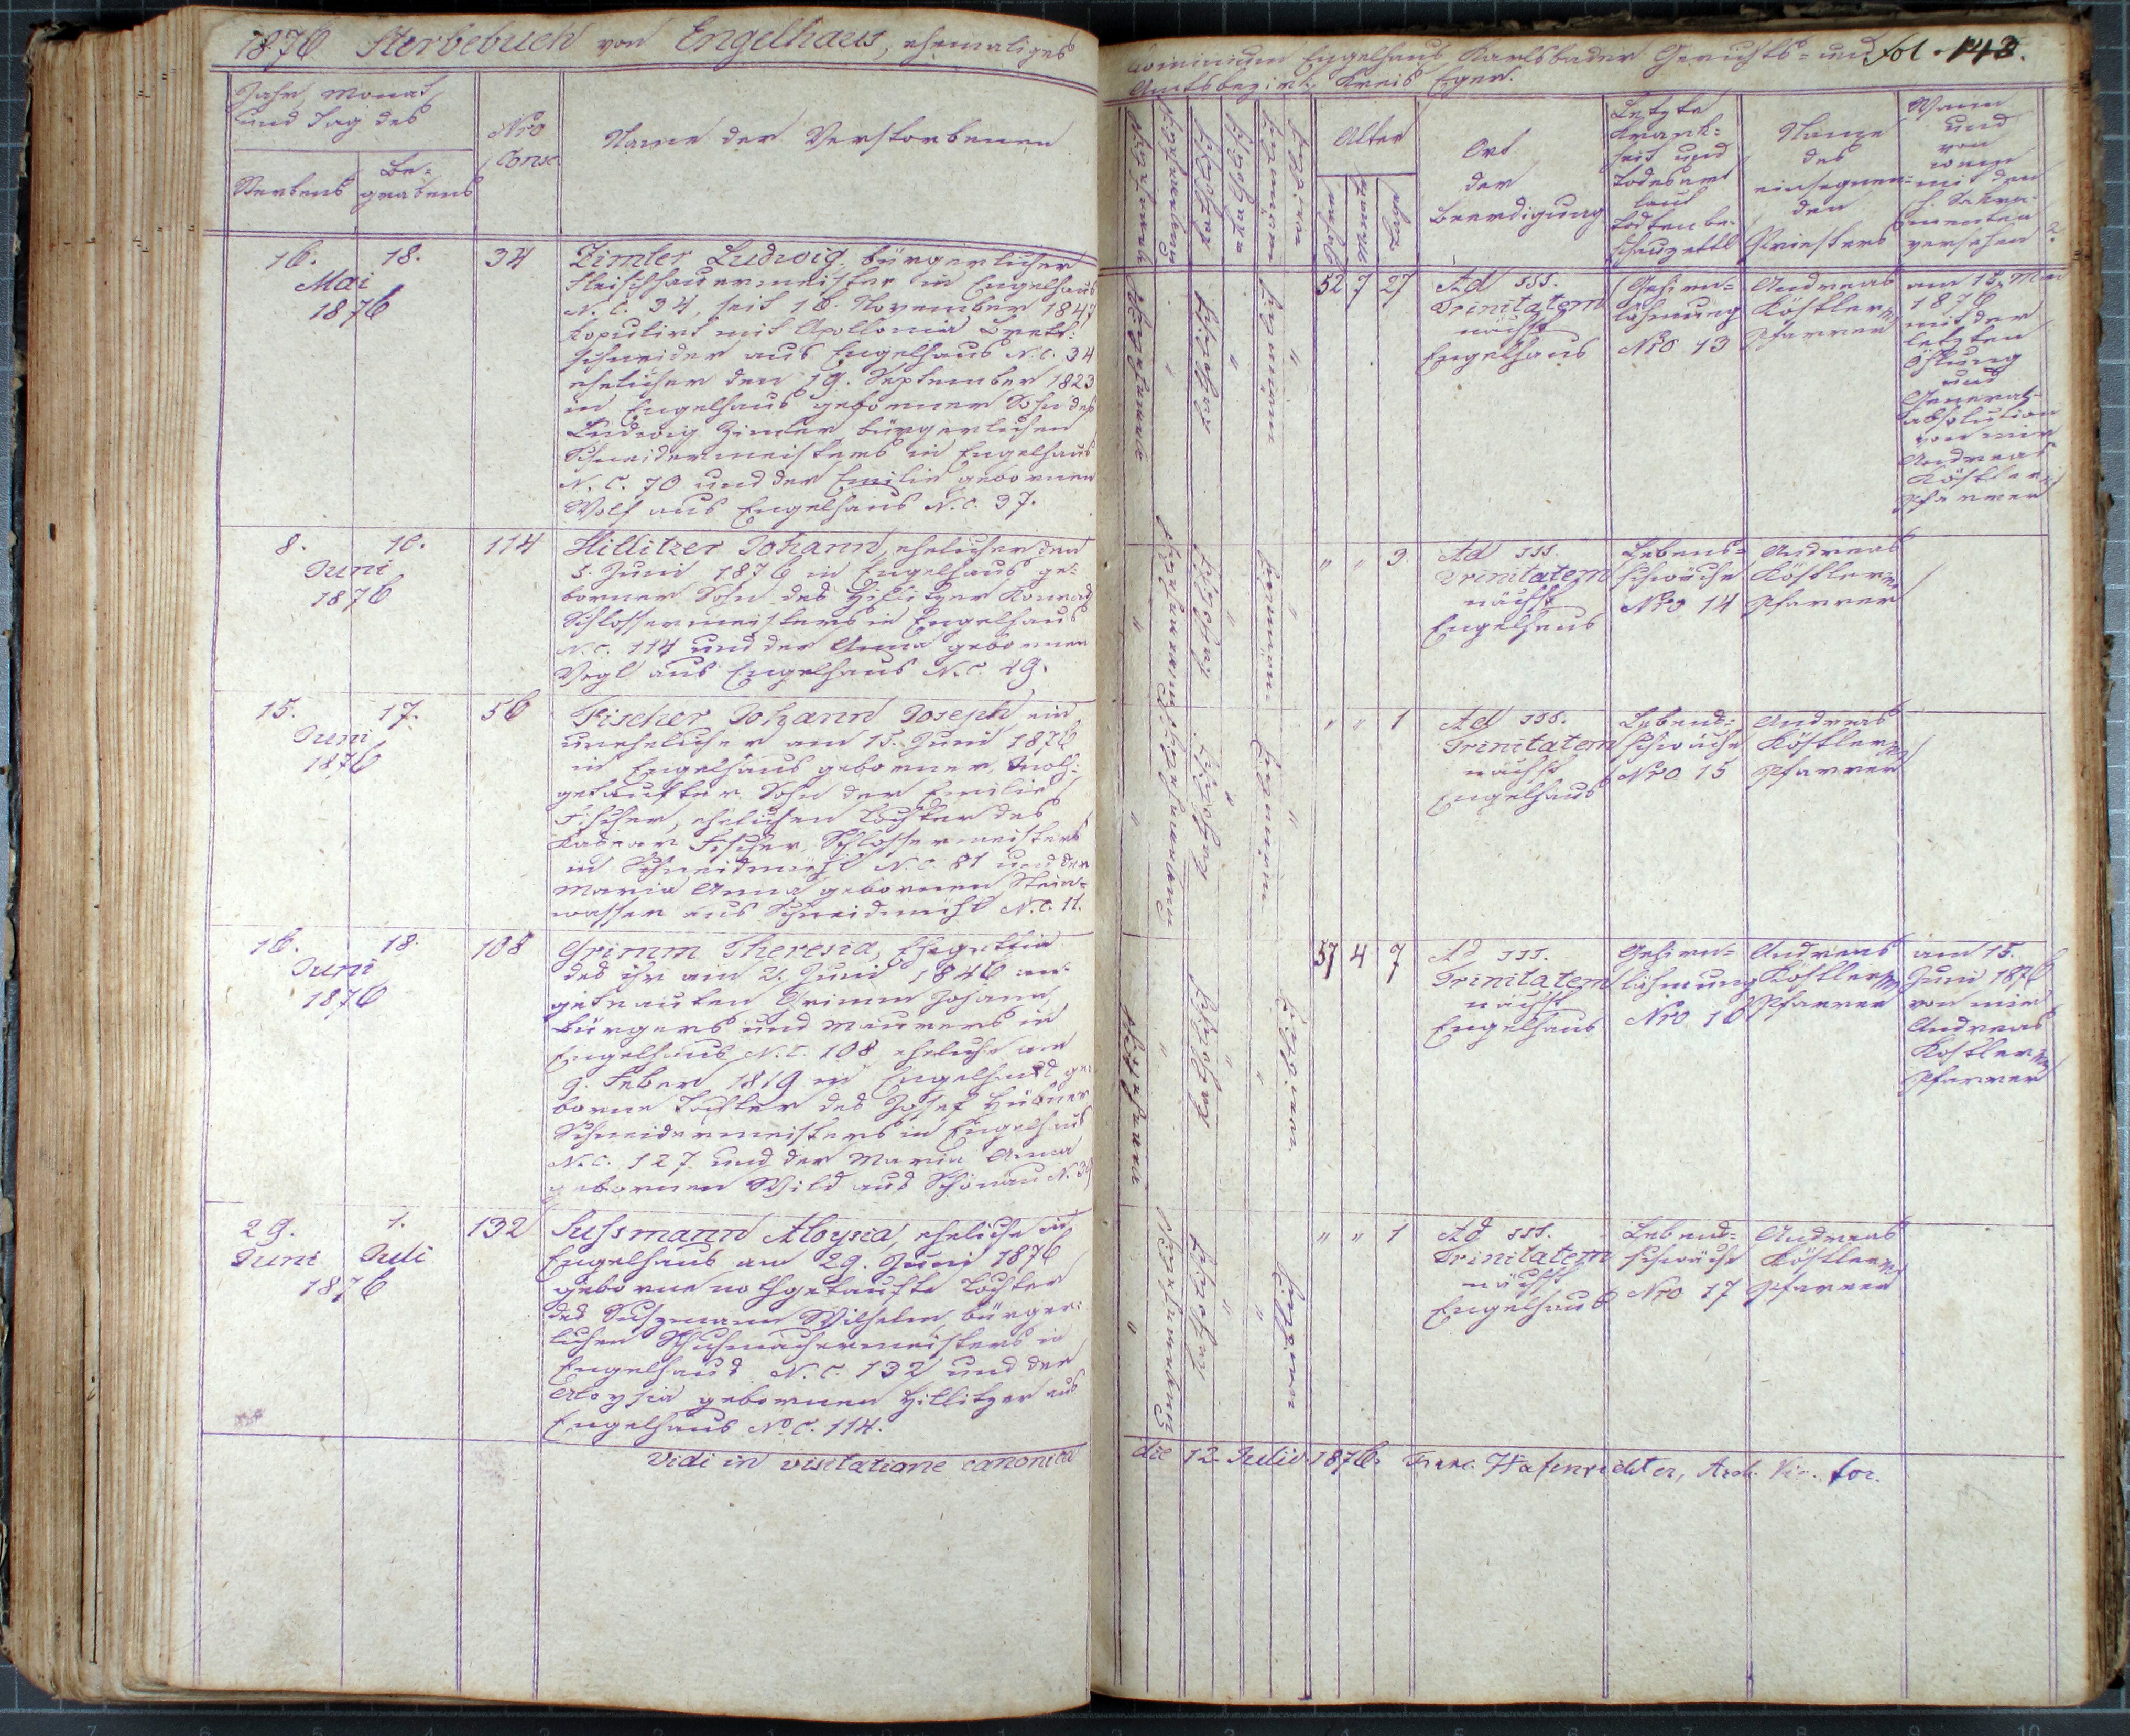 1876 Sterbebuch von Engelhaus, ehemaliges
Jahr, Monat
und Tag des
Sterbens
Be=
grabens
Nro
Consc.
Name der Verstorbenen
16. 18.
Mai
1876
34
Zimler Ludwig, bürgerlicher
Fleischhauermeister in Engelhaus
N. C. 34, seit 16. November 1847
kopulirt mit Apollonia Brett=
schneider aus Engelhaus N. C. 34
ehelicher den 19. September 1823
in Engelhaus geborner Sohn des
Ludwig Zimler bürgerlichen
Schneidermeisters in Engelhaus
N. C. 70 und der Emilie gebornen
Wolf aus Engelhaus N. C. 37.
8. 10.
Juni
1876
114
Hillitzer Johann, ehelicher den
5. Juni 1876 in Engelhaus ge=
borner Sohn des Hillitzer Konrad
Schlossermeisters in Engelhaus
N. C. 114 und der Anna gebornen
Vogl aus Engelhaus N. C. 49.
15. 17.
Juni
1876
56
Fischer Johann Joseph ein
unehelicher am 15. Juni 1876
in Engelhaus geborner, noth=
getaufter Sohn der Emilie
Fischer, ehelichen Tochter des
Fischer, Schlossermeisters
in Schneidmühl N. C. 81 und der
Maria Anna gebornen Stein=
wasser aus Schneidmühl N. C. 11.
16. 18.
Juni
1876
108
Grimm Theresia, Ehegattin
des ihr am 2. Juni 1846 an=
getrauten Grimm Johann,
Bürgers und Maurers in
Engelhaus N. C. 108 eheliche am
9. Feber 1819 in Engelhaus ge=
borne Tochter des Josef Hübner
Schneidermeisters in Engelhaus
N. C. 127 und der Maria Anna
gebornen Wild aus Schönau N. 39
29. 1.
Juni Juli
1876
132
Sussmann Aloysia, eheliche in
Engelhaus am 29. Juni 1876
geborne nothgetaufte Tochter
des Sussmann Wilhelm, bürger=
lichen Schuhmachermeisters in
Engelhaus N. C. 132 und der
Aloysia gebornen Hillitzer aus
Engelhaus N. C. 114.
Vidi in visitatione canonica
Dominium Engelhaus Karlsbader Gerichts= und fol. 143.
Amtsbezirk, Kreis Eger.
Alter
Jahre
Monate
Tage
Ort
der
Beerdigung
Letzte
Krank=
heit und
Todesart
laut
Todtenbe=
schauzettel
Name
des
einsegnen=
den
Priesters
Wann
und
von
wem
mit den
h. Sakra=
menten
versehen
52 7 27
Ad SSS.
Trinitatem
nächst
Engelhaus
Gehirn=
lähmung
Nro 13
Andreas
Köstler
Pfarrer
am 15. Mai
1876
mit der
letzten
Ölung
und
General=
absolution
von mir
Andreas
Köstler
Pfarrer
" " 3
Ad SSS.
Trinitatem
nächst
Engelhaus
Lebens=
schwäche
Nro 14
Andreas
Köstler
Pfarrer
" " 1
Ad SSS.
Trinitatem
nächst
Engelhaus
Lebens=
schwäche
Nro 15
Andreas
Köstler
Pfarrer
57 4 7
Ad SSS.
Trinitatem
nächst
Engelhaus
Gehirn=
lähmung
Nro 16
Andreas
Köstler
Pfarrer
am 15.
Juni 1876
von mir
Andreas
Köstler
Pfarrer
" " 1
Ad SSS.
Trinitatem
nächst
Engelhaus
Lebens=
schwäche
Nro 17
Andreas
Köstler
Pfarrer
die 12. Julii 1876. Franc. Hafenrichter, Arch. Vic. for.